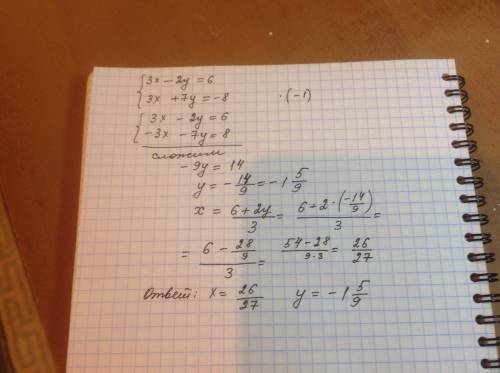 3x - 2y = 6
3x + 7y = -8 · (-1)
3x - 2y = 6
-3x - 7y = 8
сложим
-9y = 14
y = -14/9 = -1 5/9
x = (6 + 2y)/3 = (6 + 2 · (-14/9))/3 =
= (6 - 28/9)/3 = (54 - 28)/(9·3) = 26/27
Ответ: x = 26/27 y = -1 5/9